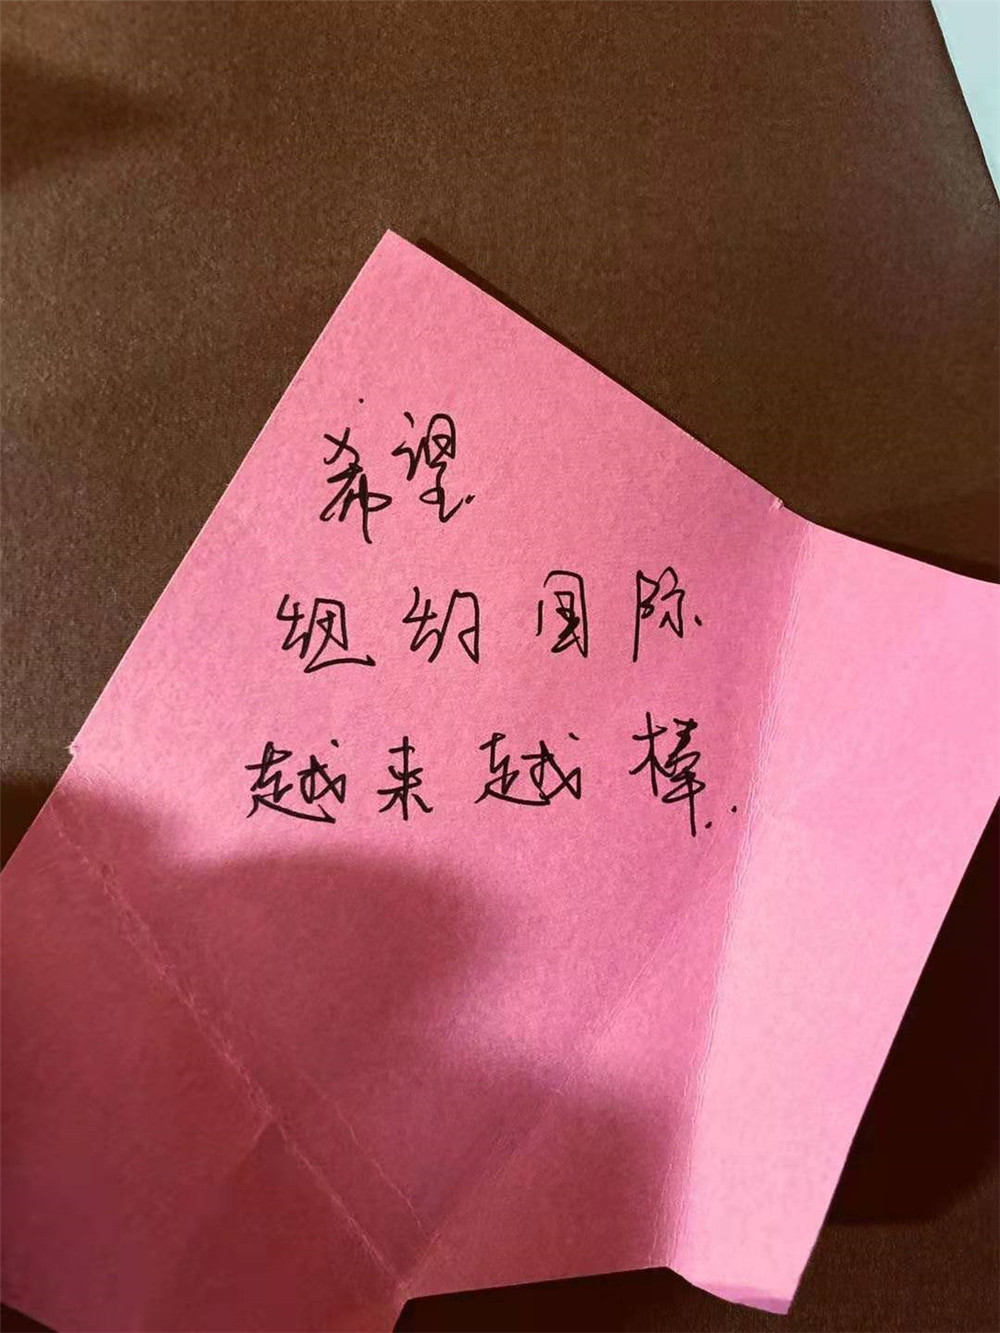 希望
纽约国际
越来越棒..